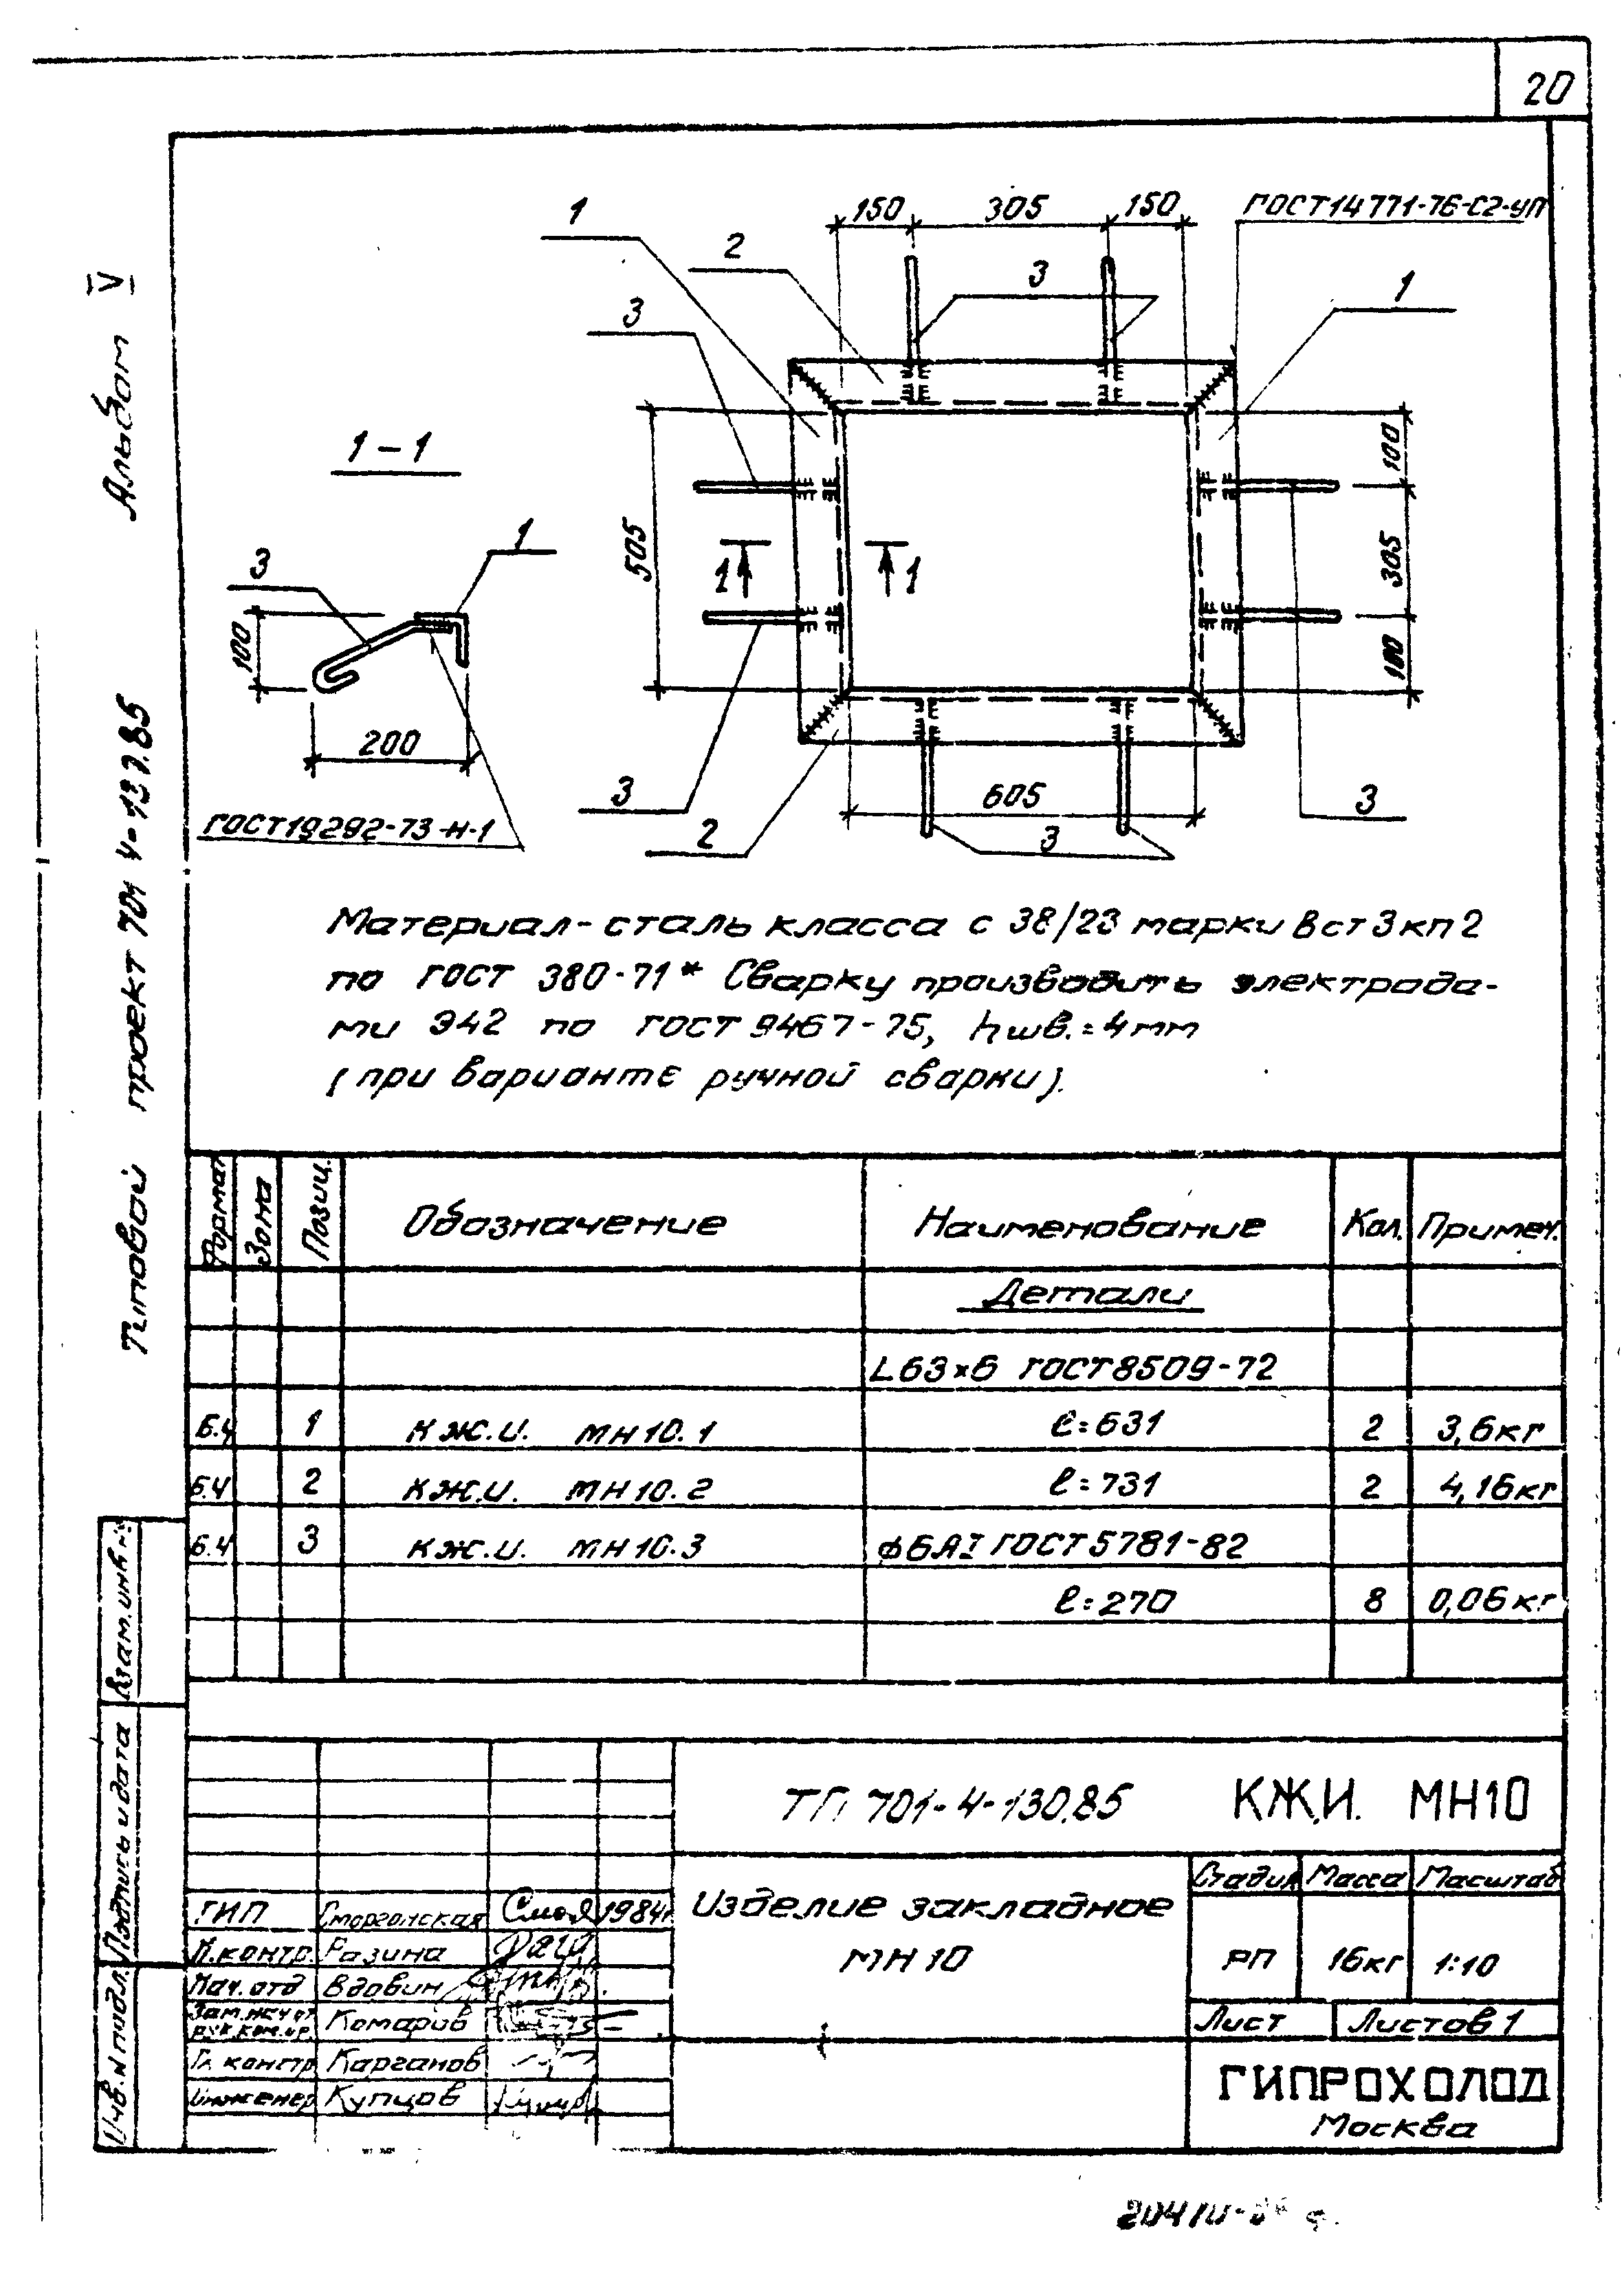 20
Альбом V
Типовой проект 701-4-130.85
1
2
3
150 305 150
ГОСТ14771-76-С2-УП
3
1
505
1 1
100
305
100
3
2
605
3
3
1-1
3
1
100
200
ГОСТ19292-73-Н-1
Материал-сталь класса с 38/23 марки Вст3кп2
по ГОСТ 380-71* Сварку производить электрода-
ми Э42 по ГОСТ 9467-75, hшв.=4мм
(при варианте ручной сварки).
Формат Зона Позиц. Обозначение Наименование Кол. Примеч.
Детали
L63×6 ГОСТ8509-72
Б.Ч 1 КЖ.И. МН10.1 ℓ=631 2 3,6кг
Б.Ч 2 КЖ.И. МН10.2 ℓ=731 2 4,16кг
Б.Ч 3 КЖ.И. МН10.3 ф6АI ГОСТ5781-82
ℓ=270 8 0,06кг
Взам.инв.№
Подпись и дата
Инв.№ подл.
ТП 701-4-130.85 КЖ.И. МН10
Изделие закладное
МН10
Стадия Масса Масштаб
РП 16кг 1:10
Лист Листов 1
ГИПРОХОЛОД
Москва
ГИП Сморгонская 1984г.
Н.контр. Разина
Нач.отд Вдовин
Комаров
Гл.констр. Карганов
Инженер Купцов